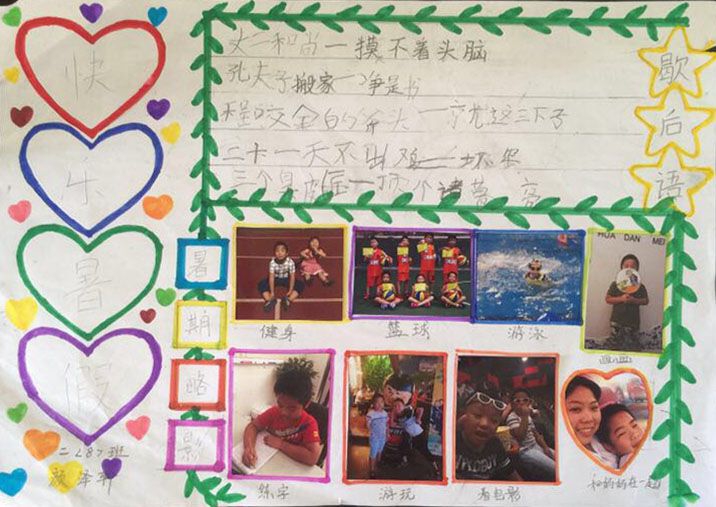 快
乐
暑
假
二〈8〉班
颜泽轩
丈二和尚一摸不着头脑
孔夫子搬家一净是书
程咬金的斧头一就这三下子
二十一天不出鸡一坏蛋
三个臭皮匠一顶个诸葛亮
歇
后
语
暑
期
略
影
HUA DAN MEI
健身
篮球
游泳
画画
练字
游玩
看电影
和妈妈在一起